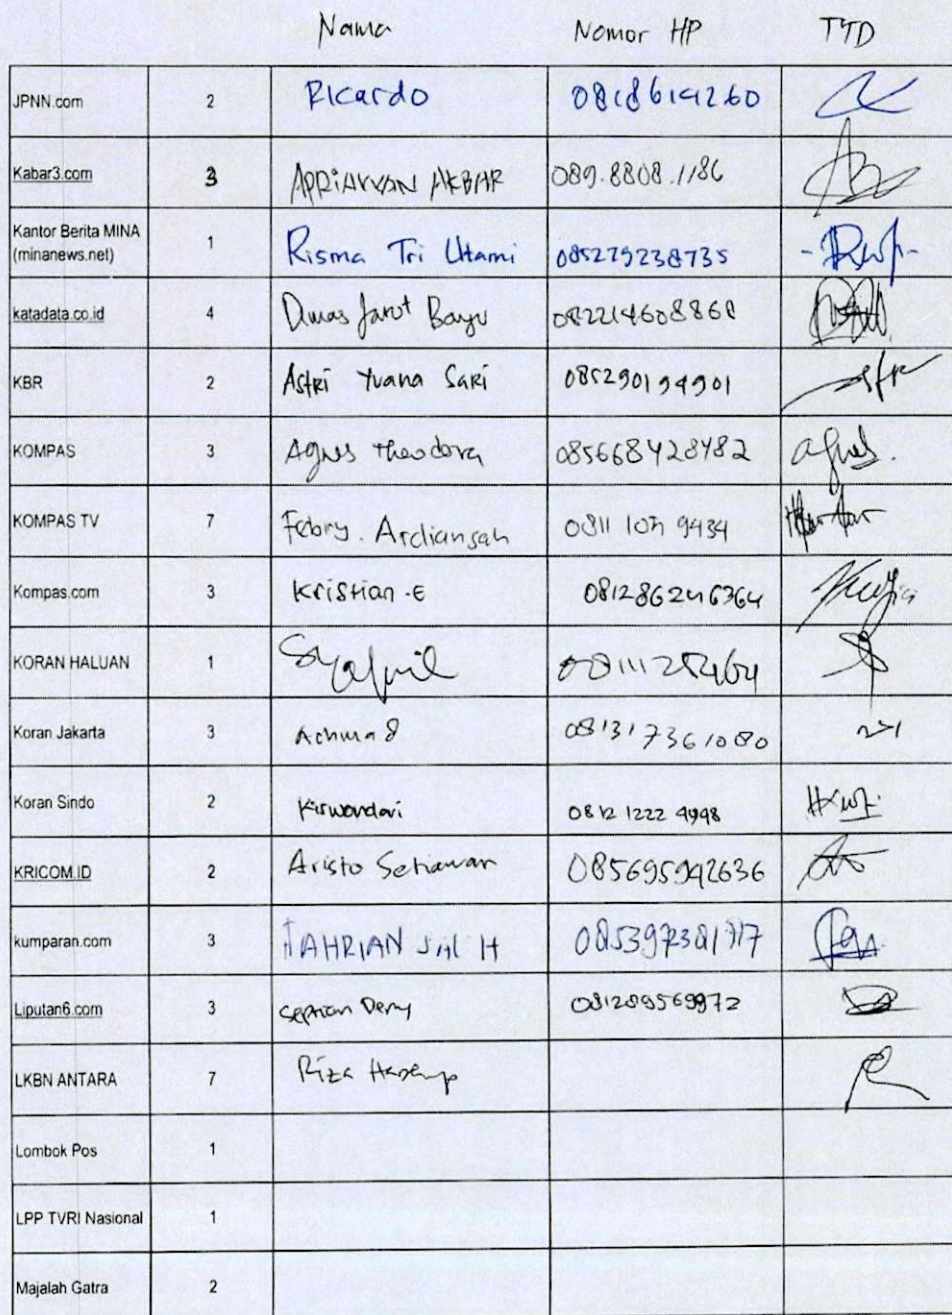 Nama Nomor HP TTD
JPNN.com 2 Ricardo
Kabar3.com 3 APRIAVVAN AKBAR 089.8808.1186
Kantor Berita MINA
(minanews.net) 1 Risma Tri Utami 085279238735
katadata.co.id 4 Dimas Jarot Bayu
KBR 2 Astri Yuana Sari 085290194901
KOMPAS 3 Agnes Theodora 085668428482
KOMPAS TV 7 Febry. Ardiansah
Kompas.com 3 Kristian .E 081286246364
KORAN HALUAN 1
Koran Jakarta 3 Achmad 081317361080
Koran Sindo 2 0812 1222 4998
KRICOM.ID 2 Aristo Setiawan 085695942636
kumparan.com 3
Liputan6.com 3 Septian Deny 081289569972
LKBN ANTARA 7 Riza
Lombok Pos 1
LPP TVRI Nasional 1
Majalah Gatra 2